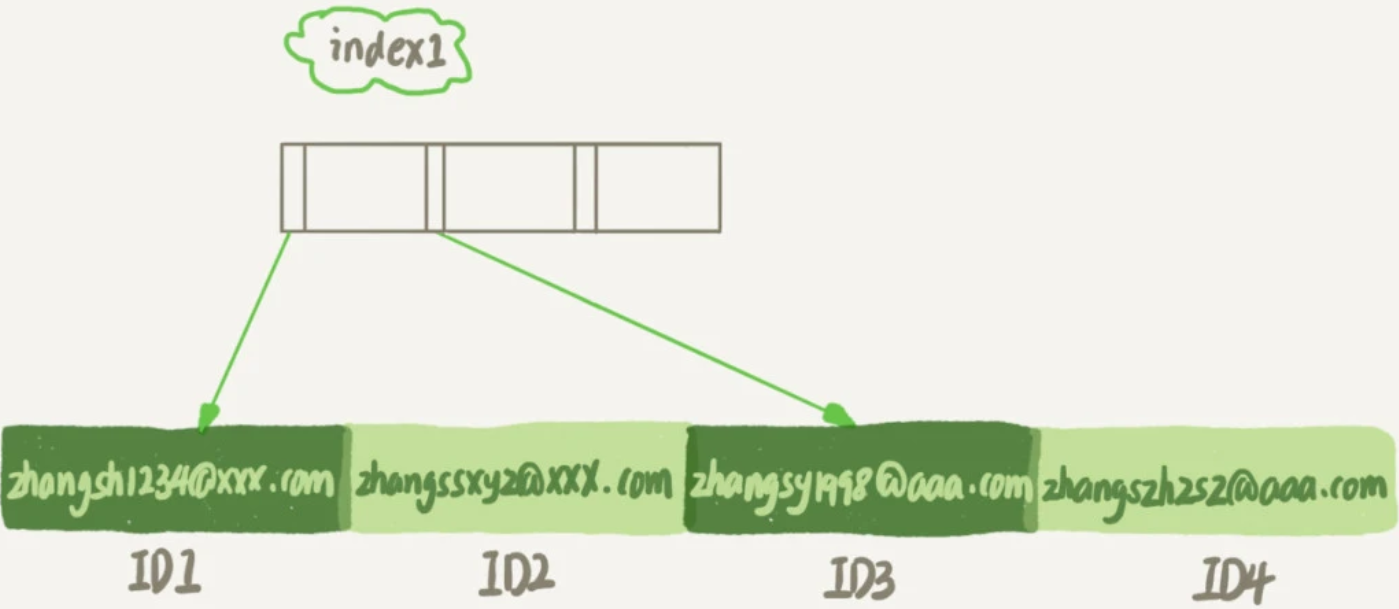 index1
zhangsh1234@xxx.com zhangssxyz@xxx.com zhangsy1998@aaa.com zhangszhzsz@aaa.com
ID1 ID2 ID3 ID4